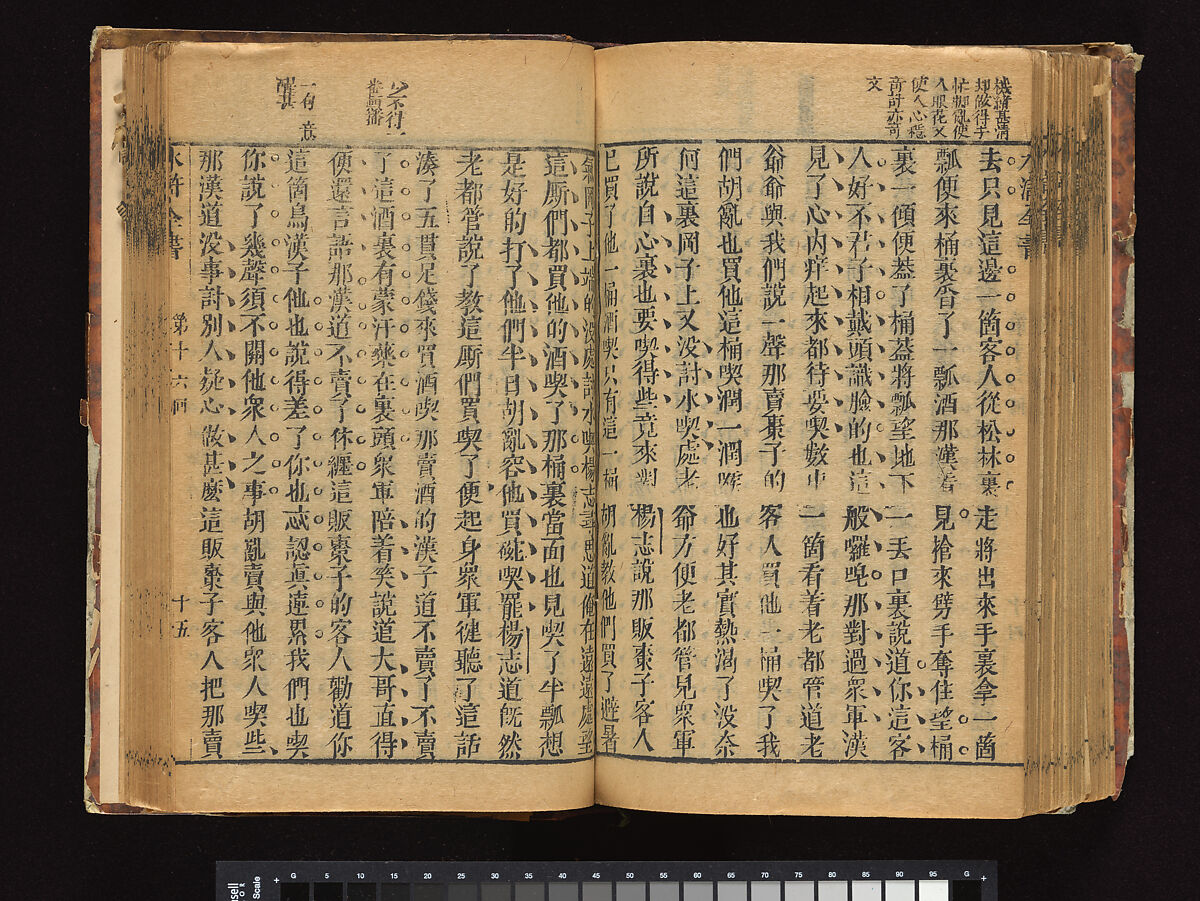 却敘得手
忙脚亂使
人眼花又
使人心穩
奇計亦奇
文
去只見這邊一箇客人從松林裏走將出來手裏拿一箇
瓢便來桶裏舀了一瓢酒那漢看見搶來劈手奪住望桶
裏一傾便蓋了桶蓋將瓢望地下一丟口裏說道你這客
人好不君子相戴頭識臉的也這般囉唣那對過衆軍漢
見了心内痒起來都待要喫數中一箇看着老都管道老
爺爺與我們說一聲那賣棗子的客人買他一桶喫了我
們胡亂也買他這桶喫潤一潤喉也好其實熱渴了没奈
何這裏岡子上又没討水喫處老爺方便老都管見衆軍
所說自心裏也要喫得些竟來對楊志說那販棗子客人
已買了他一桶酒喫只有這一桶胡亂教他們買了避暑
氣岡子上端的没處討水喫楊志尋思道俺在遠遠處望
這厮們都買他的酒喫了那桶裏當面也見喫了半瓢想
是好的打了他們半日胡亂容他買碗喫罷楊志道旣然
老都管說了教這厮們買喫了便起身衆軍健聽了這話
湊了五貫足錢來買酒喫那賣酒的漢子道不賣了不賣
了這酒裏有蒙汗藥在裏頭衆軍陪着笑說道大哥直得
便還言語那漢道不賣了休纏這販棗子的客人勸道你
這箇鳥漢子他也說得差了你也忒認眞連累我們也喫
你說了幾聲須不關他衆人之事胡亂賣與他衆人喫些
那漢道没事討別人疑心做甚麼這販棗子客人把那賣
少不得一
水滸全書
第十六回
十五